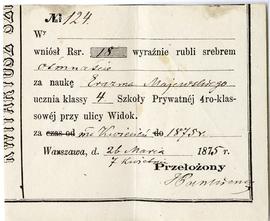 № 124
W
wniósł Rsr. 18 wyraźnie rubli srebrem
ośmnaście
za naukę Erazma Majewskiego
ucznia klassy 4 Szkoły Prywatnéj 4ro-klas-
sowéj przy ulicy Widok.
za czas od do 1875 r.
Warszawa, d. 26 Marca 1875 r.
7 Kwietnia
Przełożony
KWITARIUSZ